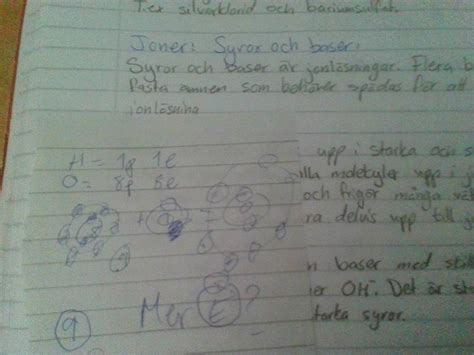 T.ex silverklorid och bariumsulfat.
Joner: Syror och baser:
Syror och baser är jonlösningar. Flera b
Fasta ämnen som behöver spädas för att
jonlösning
upp i starka och s
lla molekyler upp i j
H = 1p 1e
O = 8p 8e
och frigör många vät
ra delvis upp till j
+ =
n baser med stäl
er OH⁻. Det är st
tarka syror.
Mer E?
9